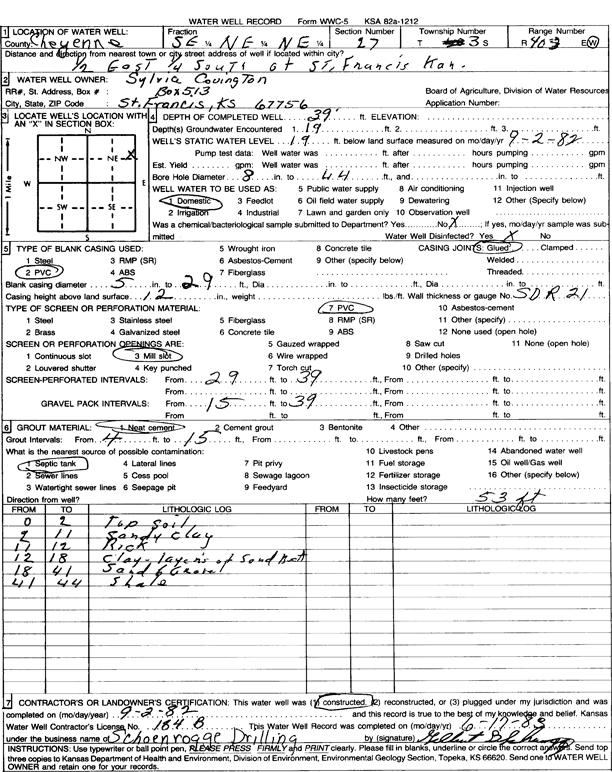 WATER WELL RECORD Form WWC-5 KSA 82a-1212
1 LOCATION OF WATER WELL: Fraction Section Number Township Number Range Number
County: Cheyenne SE ¼ NE ¼ NE ¼ 27 T 3 S R 40 E W
Distance and direction from nearest town or city street address of well if located within city?
½ East ¼ South of St. Francis Kan.
2 WATER WELL OWNER: Sylvia Covington
RR#, St. Address, Box # : Box 513 Board of Agriculture, Division of Water Resources
City, State, ZIP Code : St. Francis, KS 67756 Application Number:
3 LOCATE WELL'S LOCATION WITH AN "X" IN SECTION BOX:
N
NW NE X
W E
SW SE
S
1 Mile
4 DEPTH OF COMPLETED WELL 39' ft. ELEVATION:
Depth(s) Groundwater Encountered 1. 19 ft. 2. ft. 3. ft.
WELL'S STATIC WATER LEVEL 19 ft. below land surface measured on mo/day/yr 9-2-82
Pump test data: Well water was ft. after hours pumping gpm
Est. Yield gpm: Well water was ft. after hours pumping gpm
Bore Hole Diameter 8 in. to 44 ft., and in. to ft.
WELL WATER TO BE USED AS: 5 Public water supply 8 Air conditioning 11 Injection well
1 Domestic 3 Feedlot 6 Oil field water supply 9 Dewatering 12 Other (Specify below)
2 Irrigation 4 Industrial 7 Lawn and garden only 10 Observation well
Was a chemical/bacteriological sample submitted to Department? Yes No X ; If yes, mo/day/yr sample was sub-
mitted Water Well Disinfected? Yes X No
5 TYPE OF BLANK CASING USED: 5 Wrought iron 8 Concrete tile CASING JOINTS: Glued Clamped
1 Steel 3 RMP (SR) 6 Asbestos-Cement 9 Other (specify below) Welded
2 PVC 4 ABS 7 Fiberglass Threaded
Blank casing diameter 5 in. to 29 ft., Dia in. to ft., Dia in. to ft.
Casing height above land surface 12 in., weight lbs./ft. Wall thickness or gauge No. SDR 21
TYPE OF SCREEN OR PERFORATION MATERIAL: 7 PVC 10 Asbestos-cement
1 Steel 3 Stainless steel 5 Fiberglass 8 RMP (SR) 11 Other (specify)
2 Brass 4 Galvanized steel 6 Concrete tile 9 ABS 12 None used (open hole)
SCREEN OR PERFORATION OPENINGS ARE: 5 Gauzed wrapped 8 Saw cut 11 None (open hole)
1 Continuous slot 3 Mill slot 6 Wire wrapped 9 Drilled holes
2 Louvered shutter 4 Key punched 7 Torch cut 10 Other (specify)
SCREEN-PERFORATED INTERVALS: From 29 ft. to 39 ft., From ft. to ft.
From ft. to ft., From ft. to ft.
GRAVEL PACK INTERVALS: From 15 ft. to 39 ft., From ft. to ft.
From ft. to ft., From ft. to ft.
6 GROUT MATERIAL: 1 Neat cement 2 Cement grout 3 Bentonite 4 Other
Grout Intervals: From 4 ft. to 15 ft., From ft. to ft., From ft. to ft.
What is the nearest source of possible contamination: 10 Livestock pens 14 Abandoned water well
1 Septic tank 4 Lateral lines 7 Pit privy 11 Fuel storage 15 Oil well/Gas well
2 Sewer lines 5 Cess pool 8 Sewage lagoon 12 Fertilizer storage 16 Other (specify below)
3 Watertight sewer lines 6 Seepage pit 9 Feedyard 13 Insecticide storage
Direction from well? How many feet? 53 ft
FROM TO LITHOLOGIC LOG FROM TO LITHOLOGIC LOG
0 2 Top Soil
2 11 Sandy Clay
11 12 Rock
12 18 Clay-layers of Sand
18 41 Sand & Gravel
41 44 Shale
7 CONTRACTOR'S OR LANDOWNER'S CERTIFICATION: This water well was (1) constructed, (2) reconstructed, or (3) plugged under my jurisdiction and was
completed on (mo/day/year) 9-2-82 and this record is true to the best of my knowledge and belief. Kansas
Water Well Contractor's License No. 184 B This Water Well Record was completed on (mo/day/yr) 6-17-83
under the business name of Schoenrogge Drilling by (signature)
INSTRUCTIONS: Use typewriter or ball point pen, PLEASE PRESS FIRMLY and PRINT clearly. Please fill in blanks, underline or circle the correct answers. Send top
three copies to Kansas Department of Health and Environment, Division of Environment, Environmental Geology Section, Topeka, KS 66620. Send one to WATER WELL
OWNER and retain one for your records.